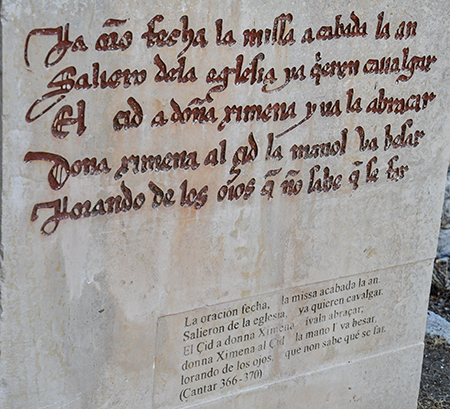 La orō fecha la missa acabada la an
Salierō dela eglesia ya q̄eren cavalgar
El çid a doña ximena yva la abraçar
Dona ximena al çid la manol va besar
lorando de los oios q̄ nō sabe q̄ se far
La oración fecha, la missa acabada la an.
Salieron de la eglesia, ya quieren cavalgar.
El Çid a donna Ximena ívala abraçar;
donna Ximena al Çid la mano l' va besar,
lorando de los ojos, que non sabe qué se far.
(Cantar 366-370)